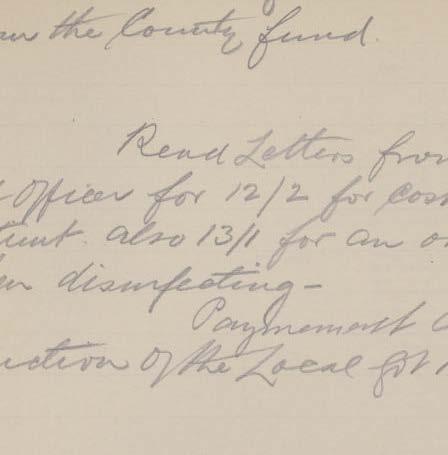 the County fund.
Read Letters from
Officer for 12/2 for cost
also 13/1 for an
disinfecting -
Paymemest
of the Local Got